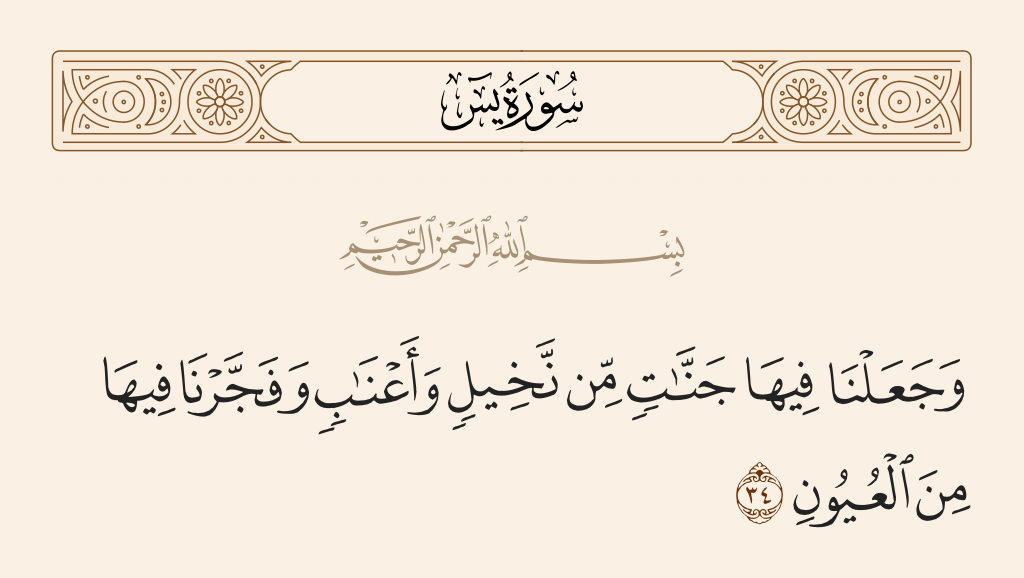 سُورَةُ يسٓ
بِسْمِ ٱللَّهِ ٱلرَّحْمَٰنِ ٱلرَّحِيمِ
وَجَعَلْنَا فِيهَا جَنَّٰتٍ مِّن نَّخِيلٍ وَأَعْنَٰبٍ وَفَجَّرْنَا فِيهَا
مِنَ ٱلْعُيُونِ ٣٤